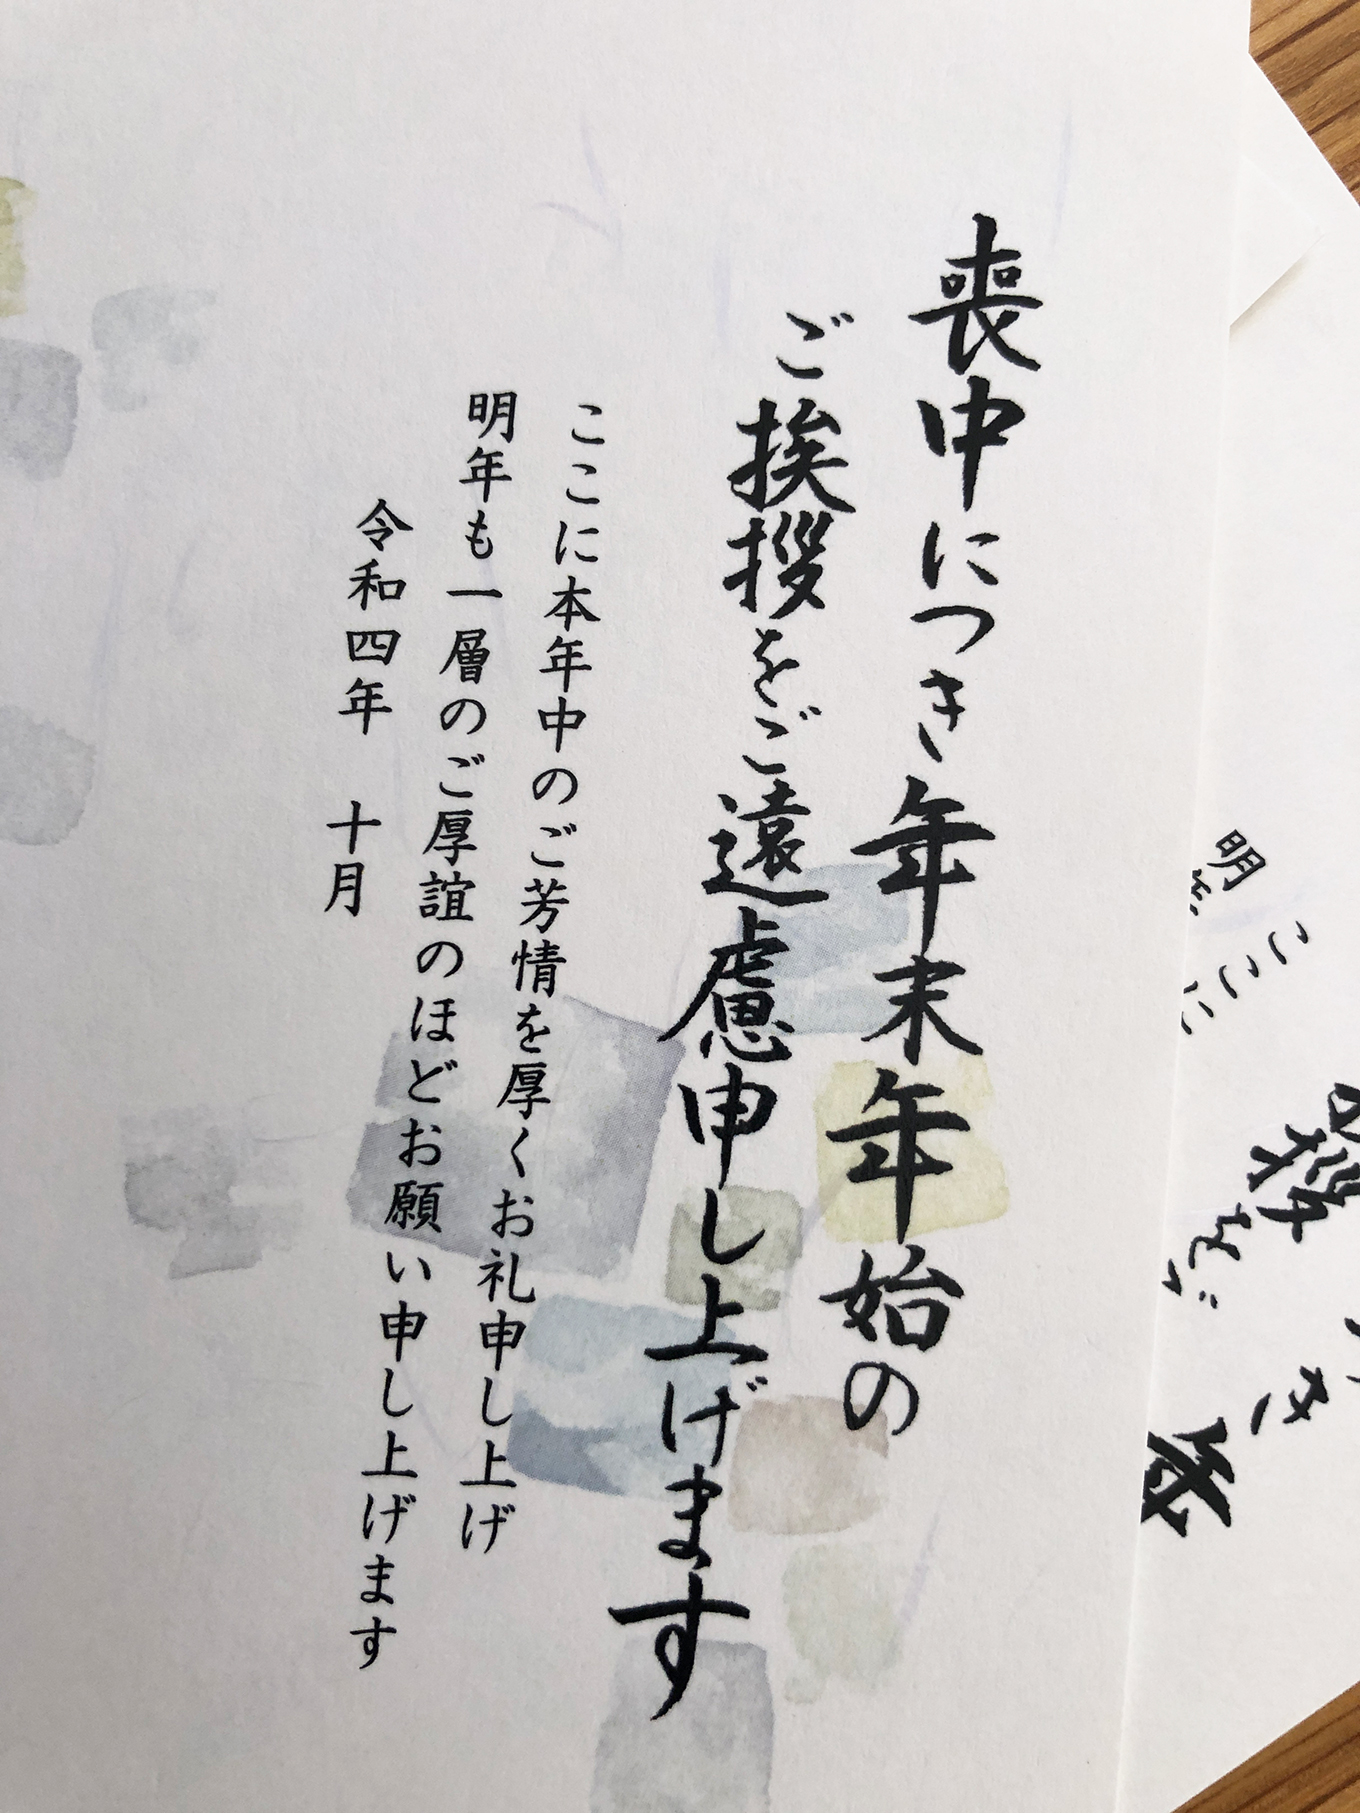 喪中につき年末年始の
ご挨拶をご遠慮申し上げます
ここに本年中のご芳情を厚くお礼申し上げ
明年も一層のご厚誼のほどお願い申し上げます
令和四年 十月
き 年
拶をご
ここに
明